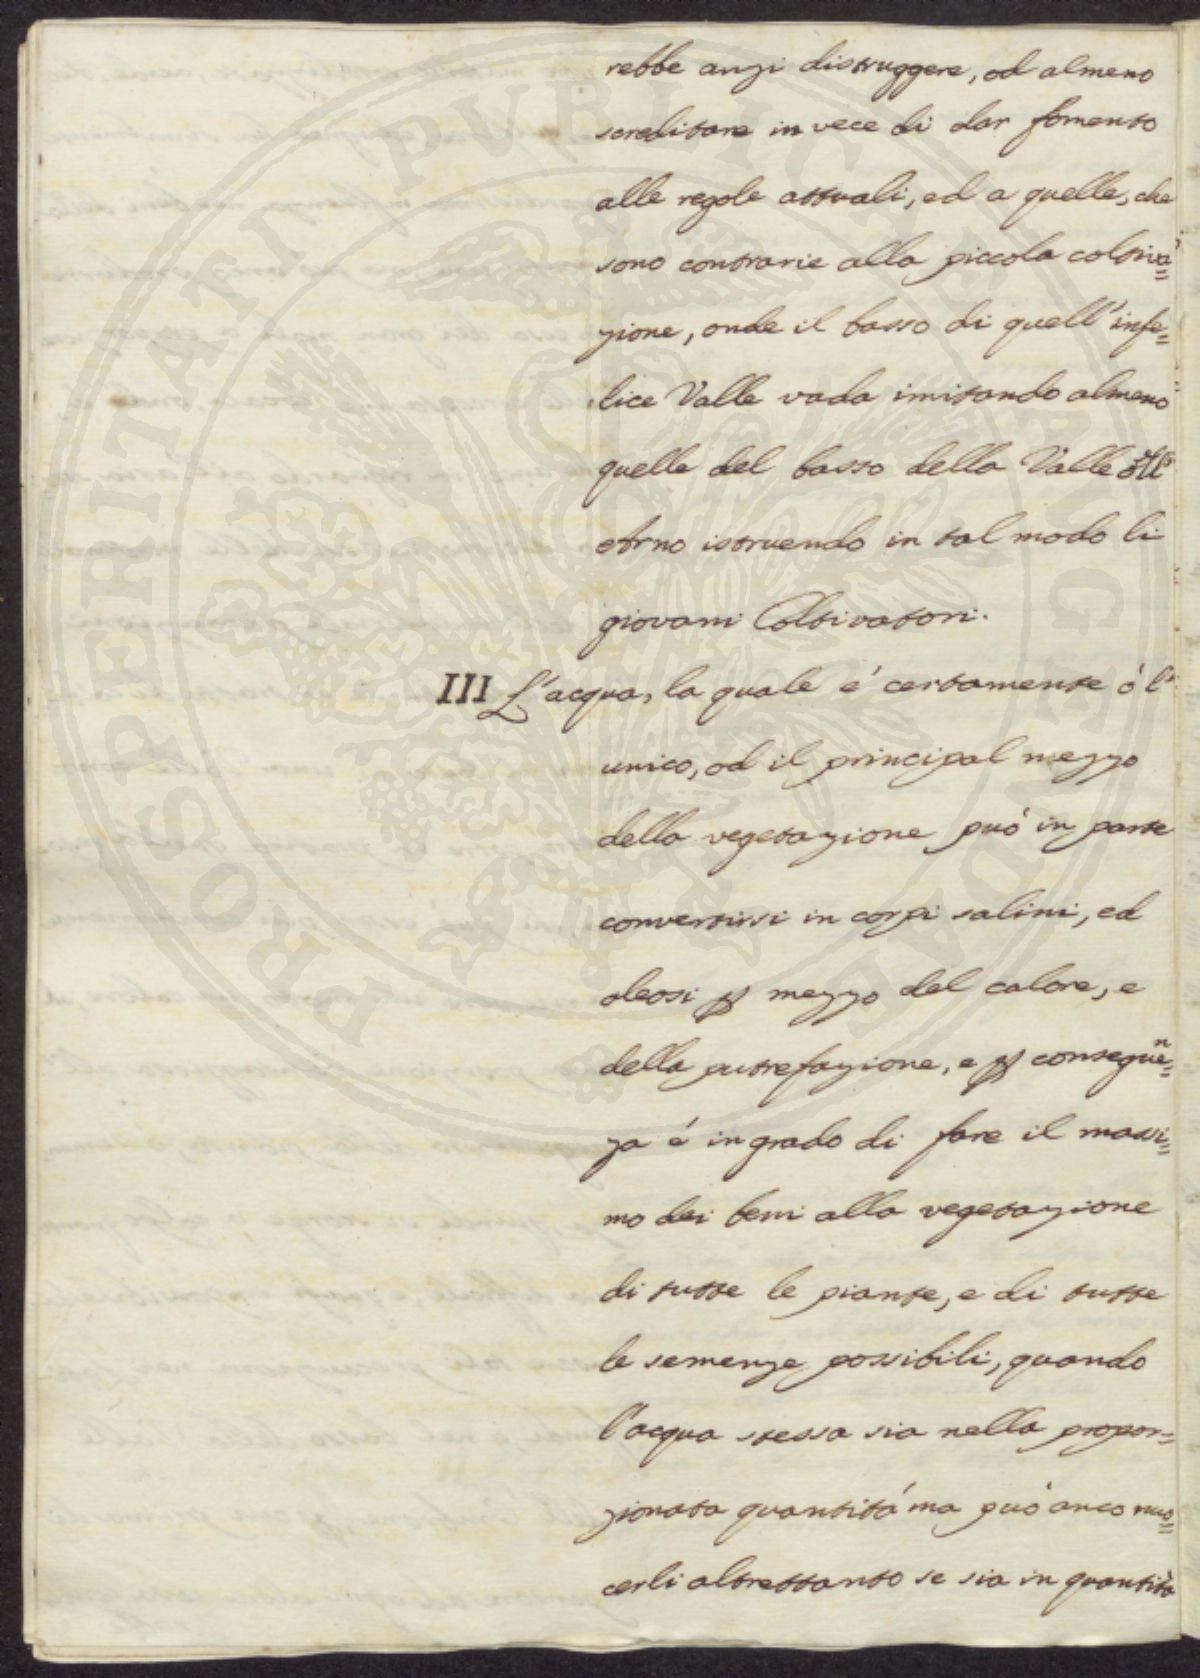 rebbe anzi distruggere, od almeno
screditare in vece di dar fomento
alle regole attuali, ed a quelle, che
sono contrarie alla piccola coltiva=
zione, onde il basso di quell'infe=
lice Valle vada imitando almeno
quelle del basso della Valle dell'
Arno istruendo in tal modo li
giovani Coltivatori.
III L'acqua, la quale é certamente ó l'
unico, od il principal mezzo
della vegetazione può in parte
convertirsi in corpi salini, ed
oleosi ꝑ mezzo del calore, e
della putrefazione, e ꝑ conseguen=
za é in grado di fare il massi=
mo dei beni alla vegetazione
di tutte le piante, e di tutte
le semenze possibili, quando
l'acqua stessa sia nella propor=
zionata quantitá ma può anco nuo=
cerli altrettanto se sia in quantità
PROSPERITATI PVBLICAE AVGENDAE